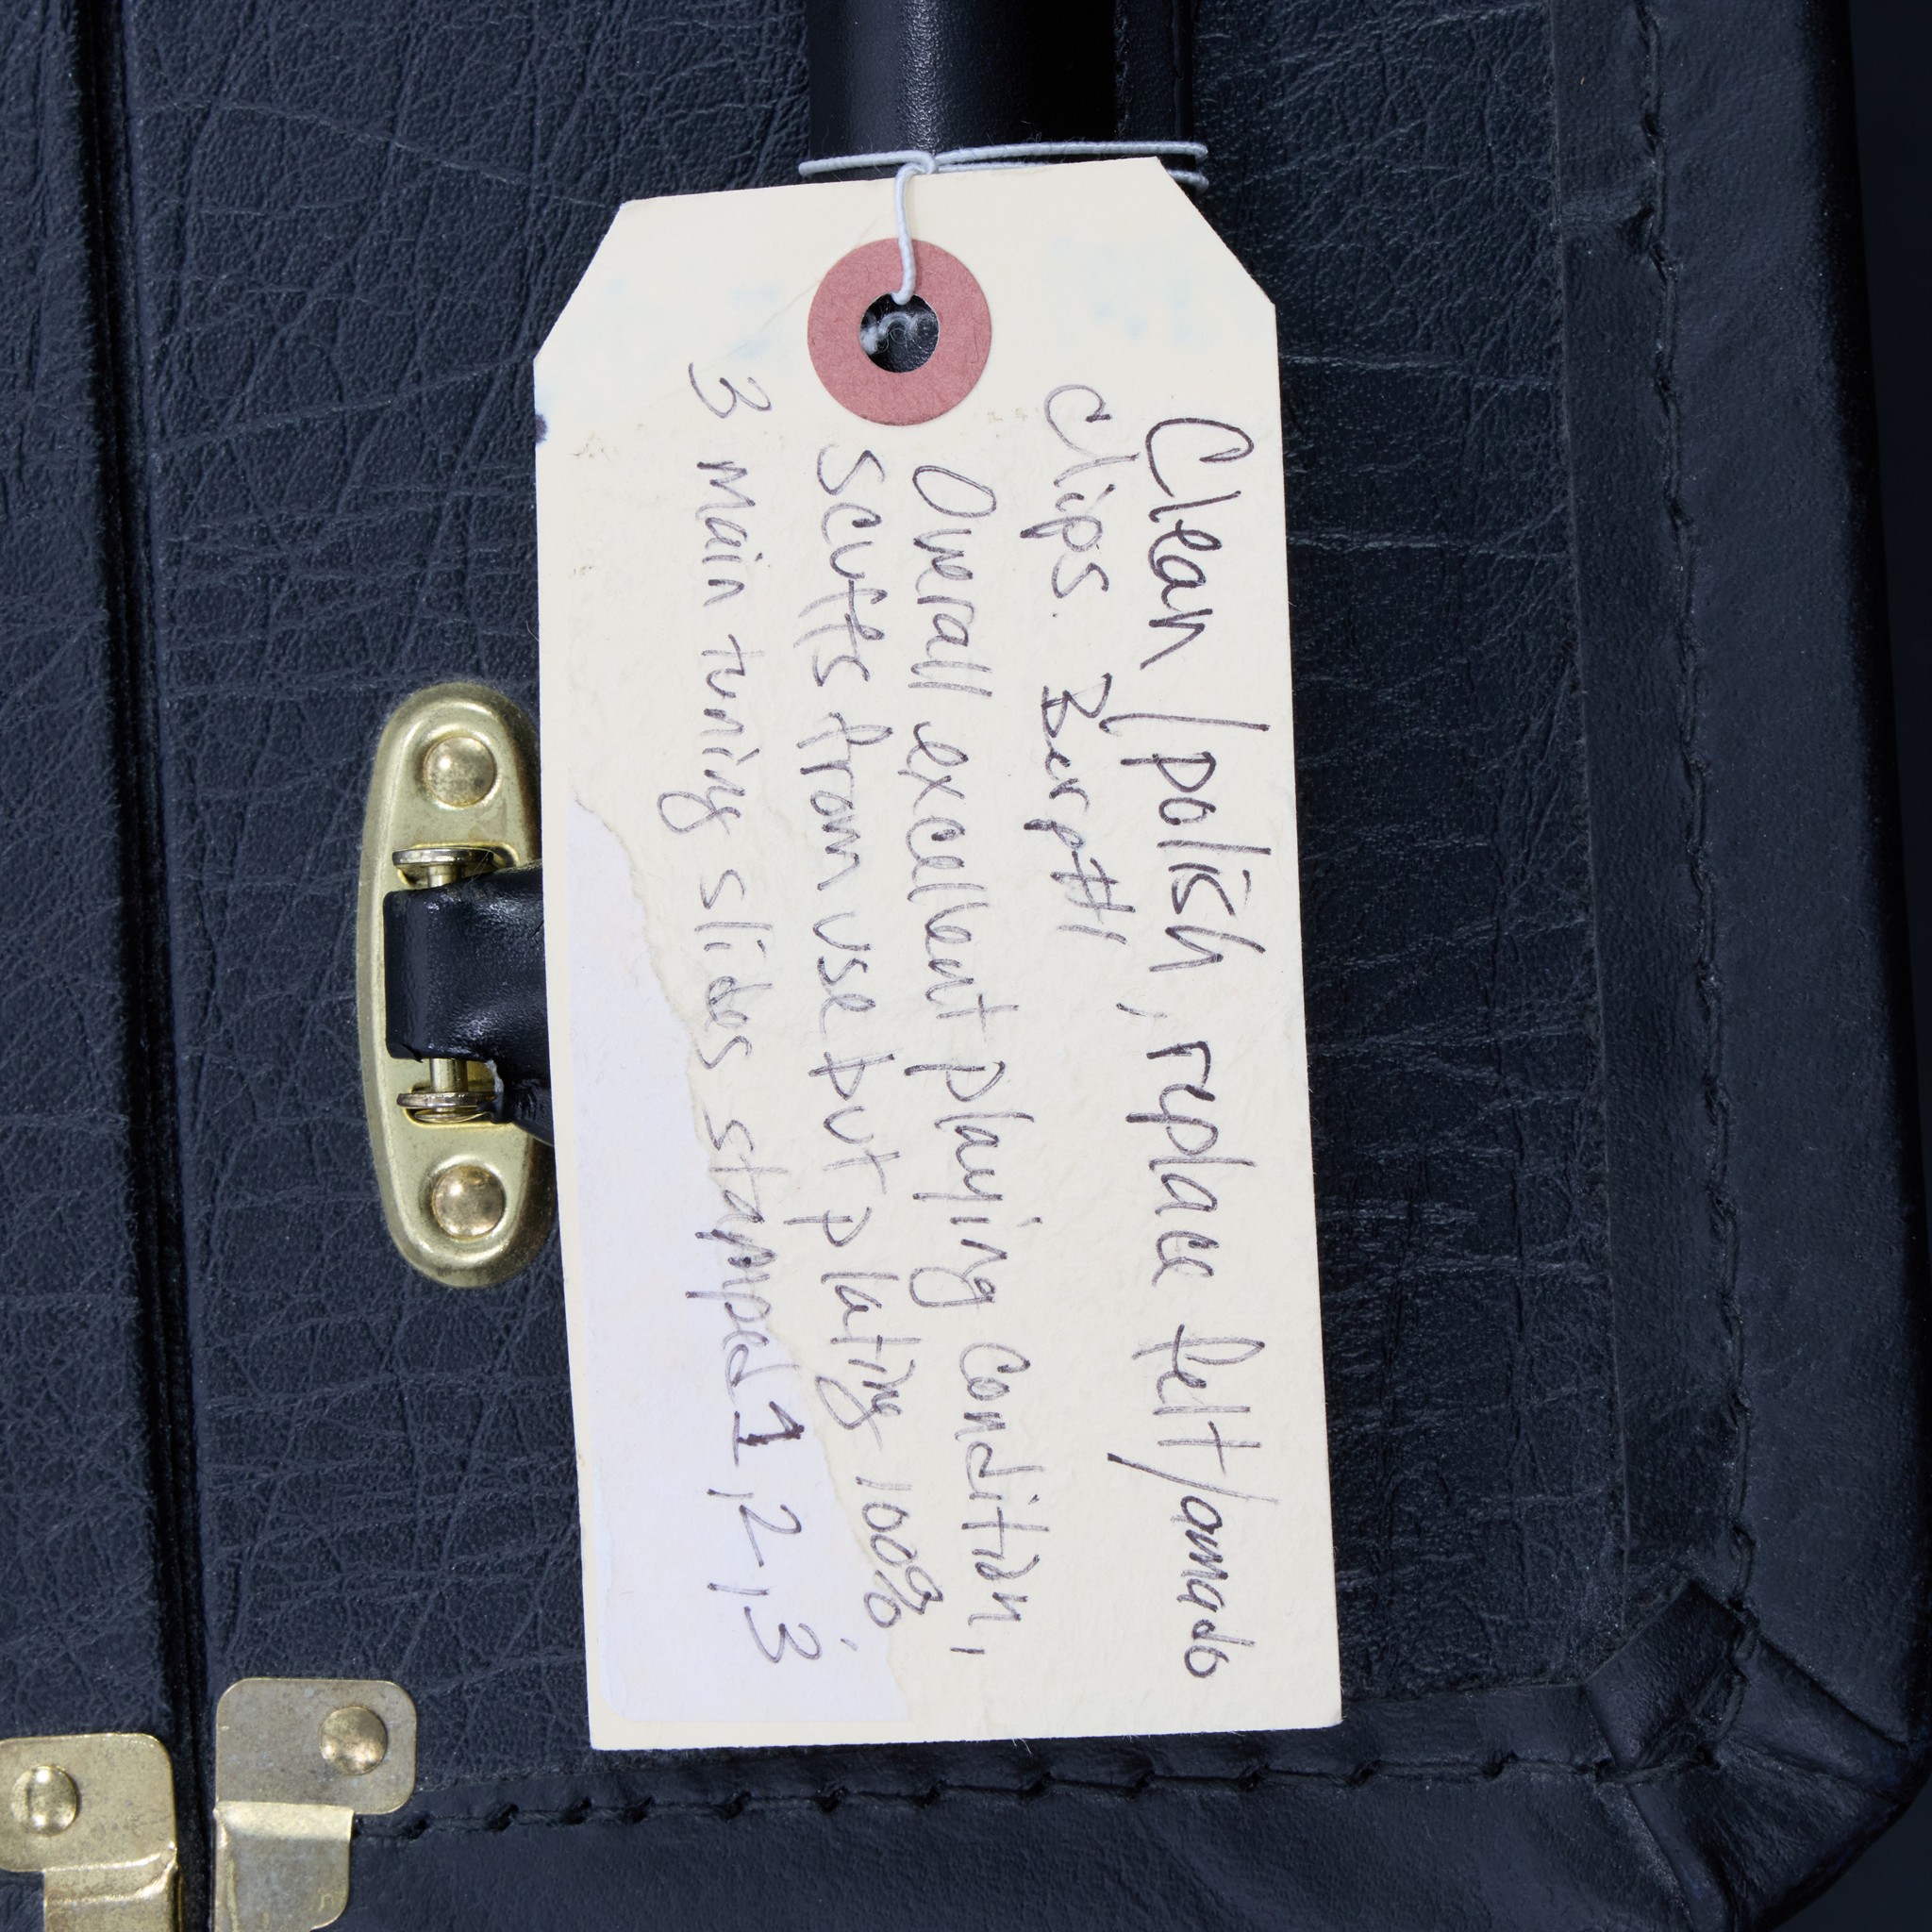 Clean/polish, replace felt/amado
Clips. Burp#1
Overall excellent playing condition,
scuffs from use but plating 100%.
3 main tuning slides stamped 1,2,3